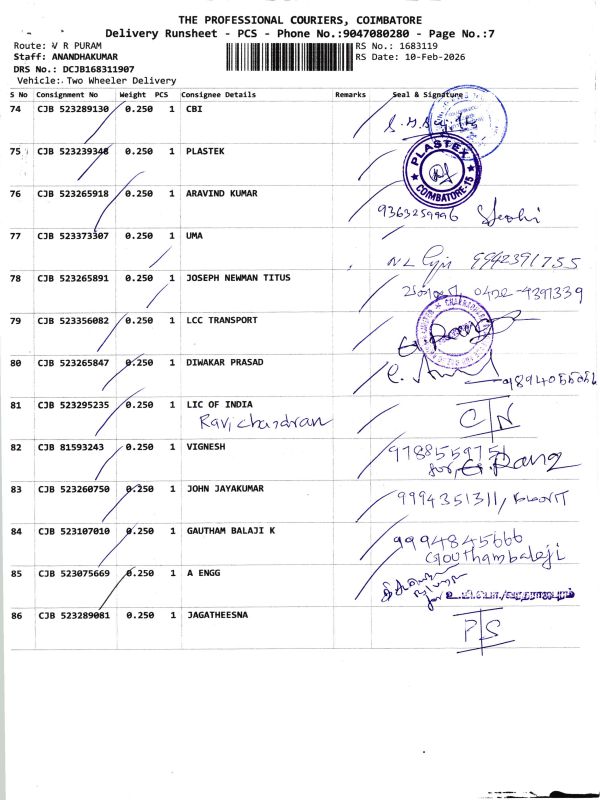 THE PROFESSIONAL COURIERS, COIMBATORE
Delivery Runsheet - PCS - Phone No.:9047080280 - Page No.:7
Route: V R PURAM
RS No.: 1683119
Staff: ANANDHAKUMAR
RS Date: 10-Feb-2026
DRS No.: DCJB168311907
Vehicle: Two Wheeler Delivery
S No Consignment No Weight PCS Consignee Details Remarks Seal & Signature
74 CJB 523289130 0.250 1 CBI
75 CJB 523239348 0.250 1 PLASTEK
PLASTEX
COIMBATORE-15
76 CJB 523265918 0.250 1 ARAVIND KUMAR
9363259996
77 CJB 523373307 0.250 1 UMA
9942391755
78 CJB 523265891 0.250 1 JOSEPH NEWMAN TITUS
0422-4397339
79 CJB 523356082 0.250 1 LCC TRANSPORT
80 CJB 523265847 0.250 1 DIWAKAR PRASAD
81 CJB 523295235 0.250 1 LIC OF INDIA
Ravichandran
C/N
82 CJB 81593243 0.250 1 VIGNESH
9788559751
for, G. Rang
83 CJB 523260750 0.250 1 JOHN JAYAKUMAR
9994351311,
84 CJB 523107010 0.250 1 GAUTHAM BALAJI K
9994845666
Gouthambalaji
85 CJB 523075669 0.250 1 A ENGG
for
86 CJB 523289081 0.250 1 JAGATHEESNA
P/S